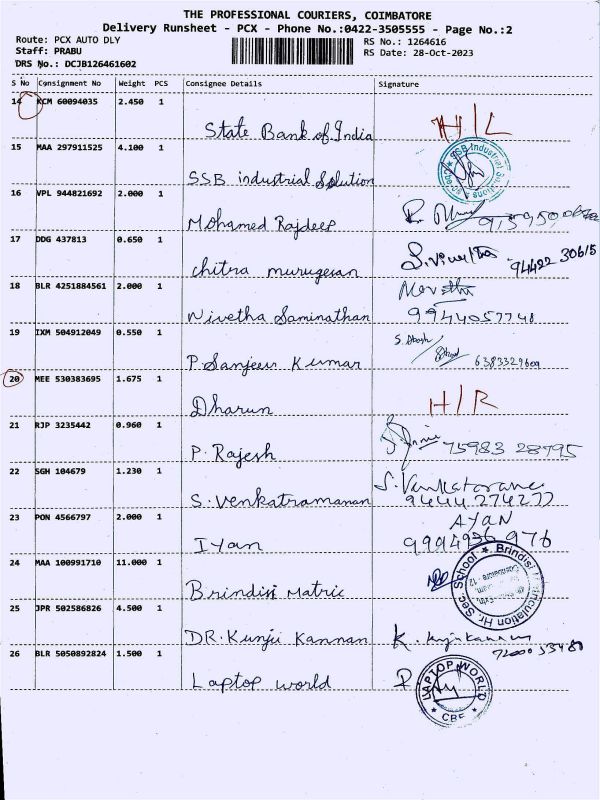 THE PROFESSIONAL COURIERS, COIMBATORE
Delivery Runsheet - PCX - Phone No.:0422-3505555 - Page No.:2
Route: PCX AUTO DLY
RS No.: 1264616
Staff: PRABU
RS Date: 28-Oct-2023
DRS No.: DCJB126461602
S No Consignment No Weight PCS Consignee Details Signature
14 KCM 60094035 2.450 1
State Bank of India H/L
15 MAA 297911525 4.100 1
SSB industrial Solution SSB Industrial Solutions
16 VPL 944821692 2.000 1
Mohamed Rajdeep
17 DDG 437813 0.650 1
chitra murugesan 94422 30615
18 BLR 4251884561 2.000 1
Nivetha Saminathan 9944057748
19 IXM 504912049 0.550 1
P. Sanjeev Kumar 6383329609
20 MEE 530383695 1.675 1
Dharun H/R
21 RJP 3235442 0.960 1
P. Rajesh 75983 28795
22 SGH 104679 1.230 1
S. Venkatramanan 94444 274277
23 PON 4566797 2.000 1
AYAN
Iyan 9994936 976
24 MAA 100991710 11.000 1
Brindisi Matric
25 JPR 502586826 4.500 1
DR. Kunju Kannan
26 BLR 5050892824 1.500 1
Laptop world LAPTOP WORLD
CBE